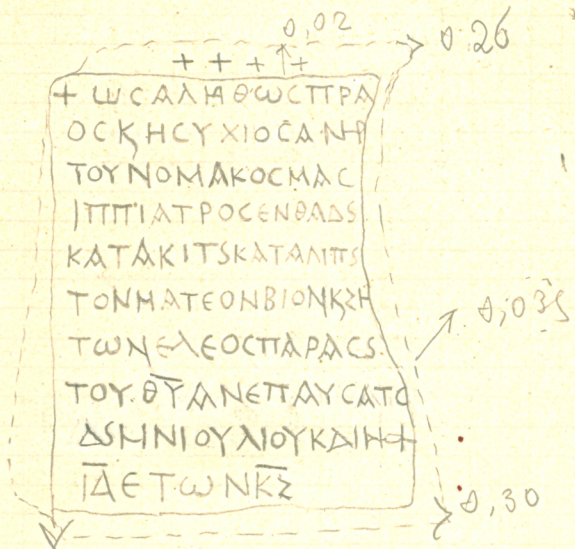 0,02
0.26
+ + + +
+ ΩϹΑΛΗΘΩϹΠΡΑ
ΟϹΚΗϹΥΧΙΟϹΑΝΗΡ
ΤΟΥΝΟΜΑΚΟϹΜΑϹ
ΙΠΠΙΑΤΡΟϹΕΝΘΑΔS
ΚΑΤΑΚΙΤSΚΑΤΑΛΙΠS
ΤΟΝΜΑΤΕΟΝΒΙΟΝΚΖΗ
ΤΩΝΕΛΕΟϹΠΑΡΑϹS
ΤΟΥ.Θ̅Υ̅ΑΝΕΠΑΥϹΑΤΟ
ΔSΜΝΙΟΥΛΙΟΥΚΔΙΝ+
Ι̅Δ̅ΕΤΩΝΚ̅Ζ̅
0,035
0,30